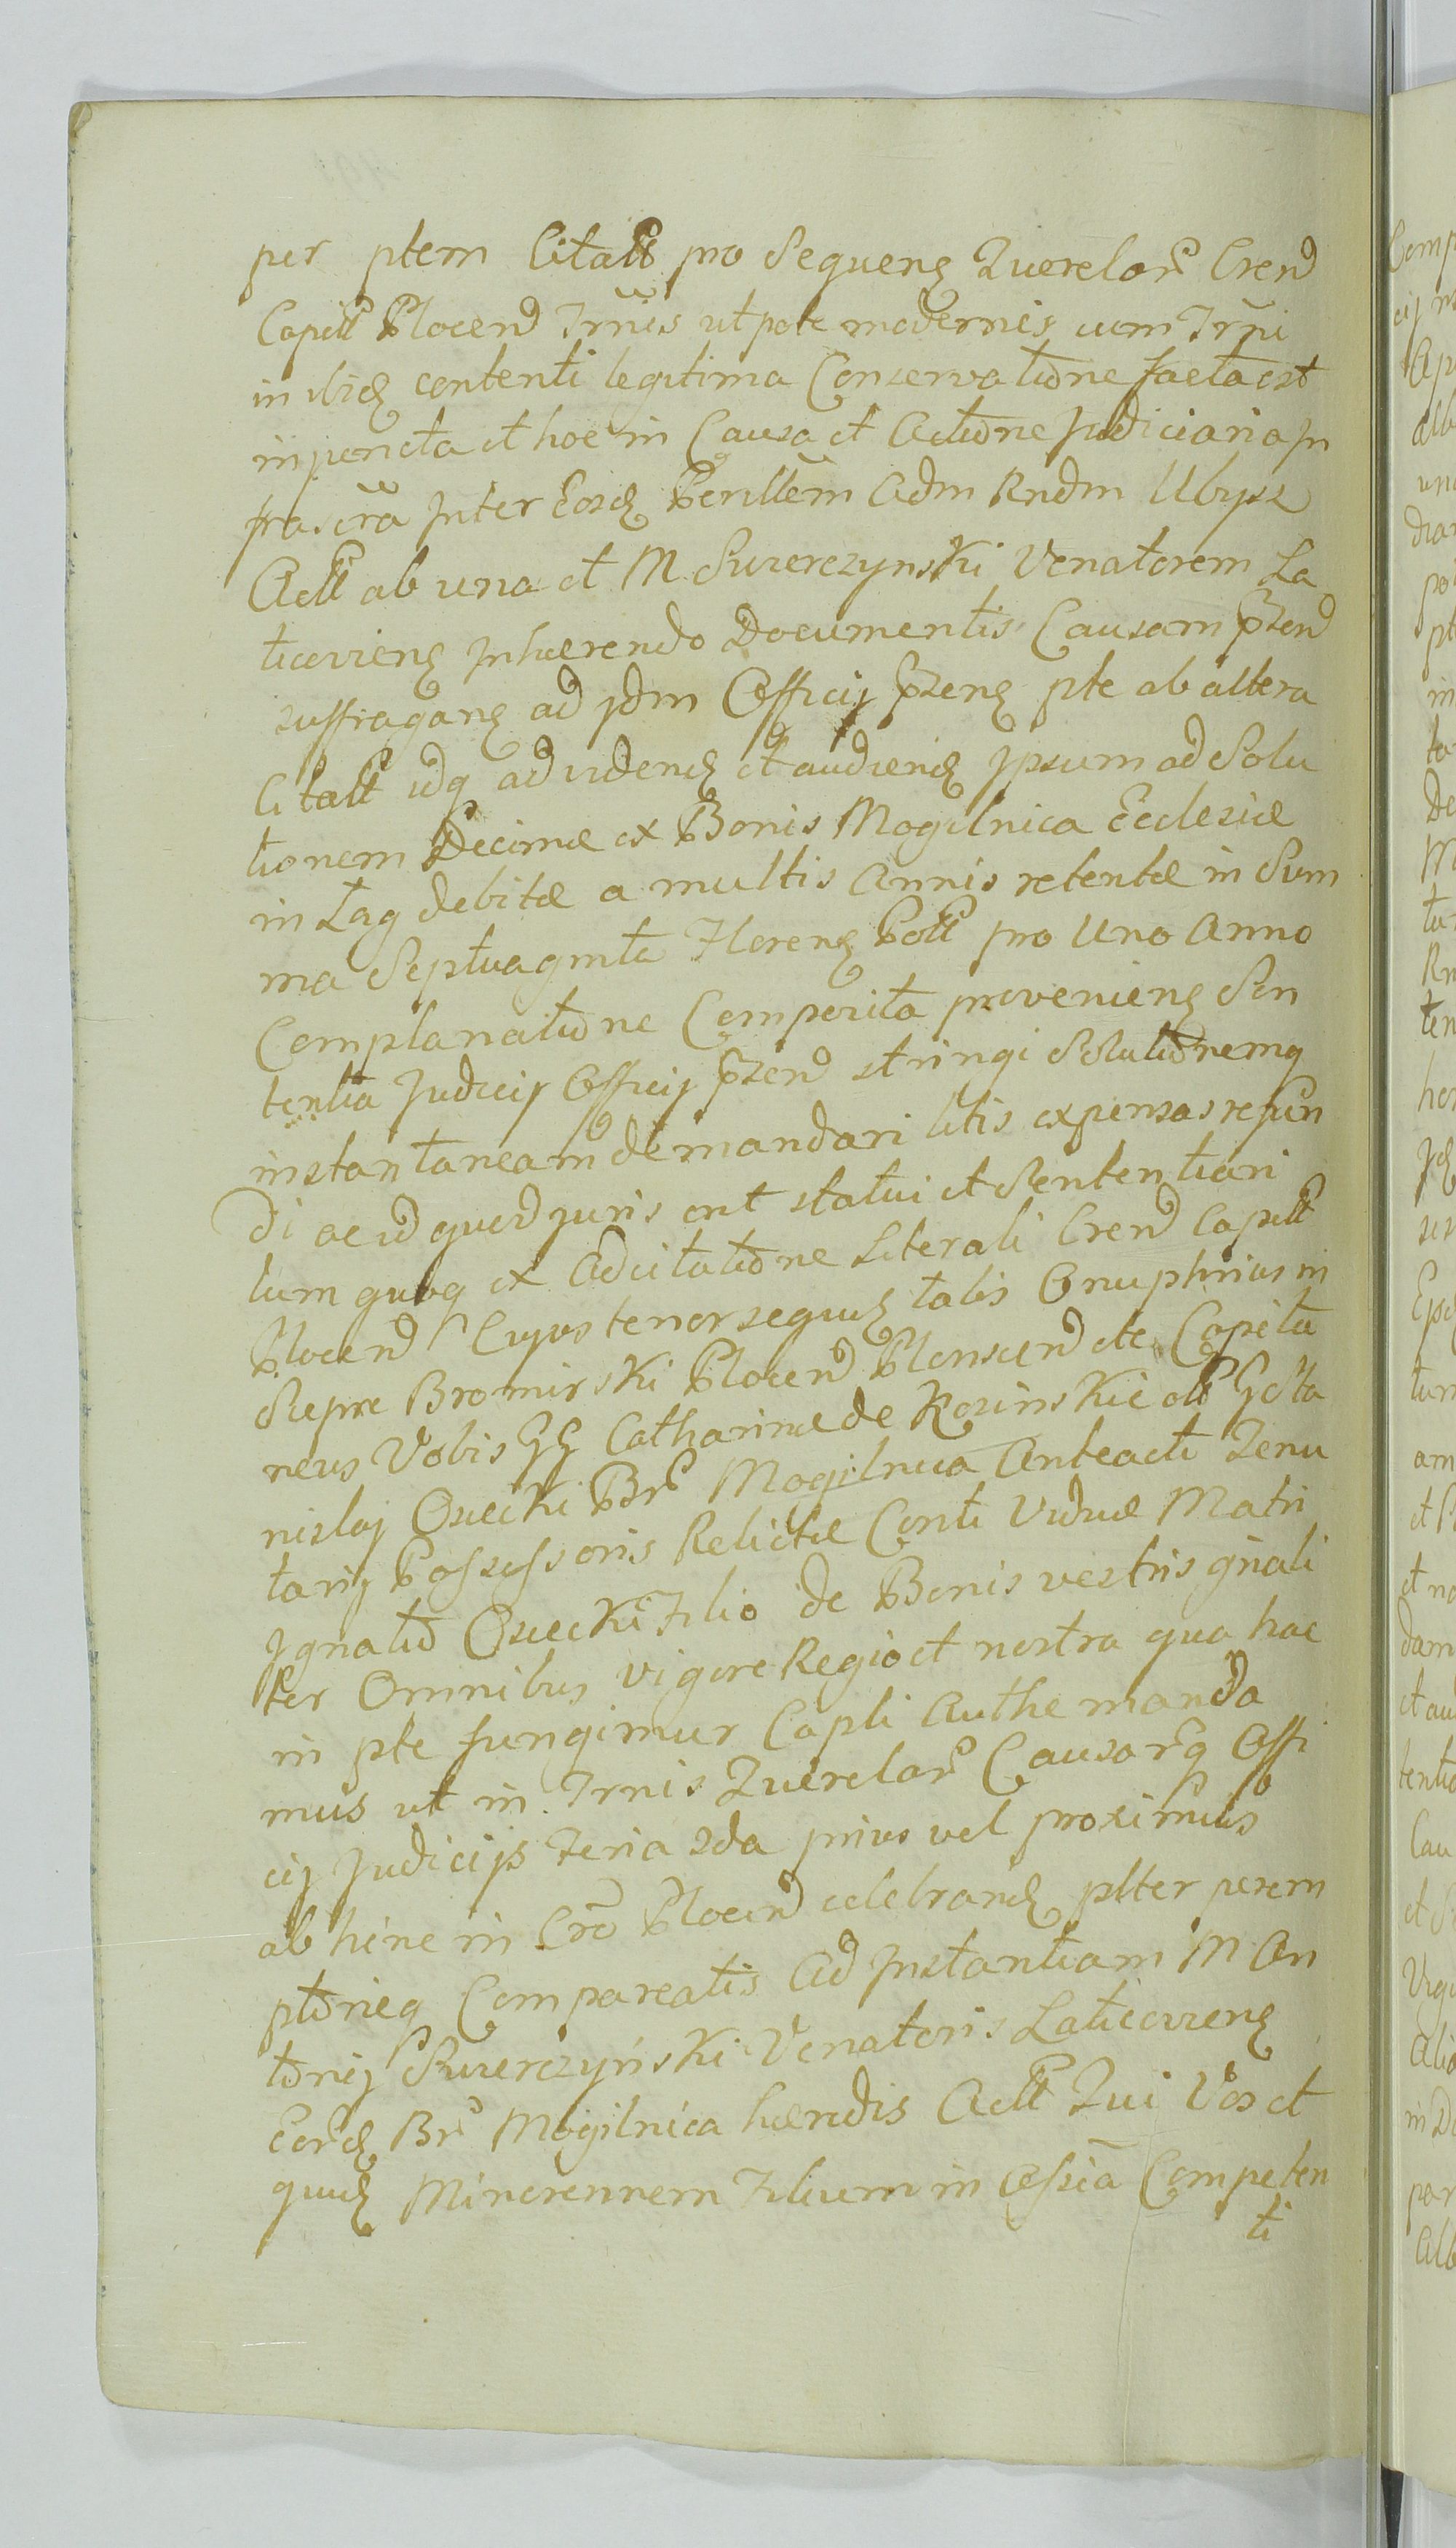 per ptem Citatt pro Sequens Querelar Cren
Capit Plocen Trnis utpote modernis cum Trni
in iisd contenti legitima Conservatione facta est
injuncta et hoc in Causa et Actione Judiciaria in
frascra Inter Eosd Perillem Adm Rndm Ubysz
Actt ab una et M Swierczynski Venatorem La
ticoviens Inhaerendo Documentis Causam przen
suffragans ad jdm Officij przens pte ab altera
Citatt idq ad vidend et audiend Ipsum ad Solu
tionem Decimae ex Bonis Mogilnica Ecclesiae
in Łęg debitae a multis Annis retentae in Sum
ma Septuaginta Florens Poll pro Uno Anno
Complanatione Comperita proveniens Sen
tentia Judicij Officij przen stringi Solutionemq
instantaneam demandari litis expensas refun
di ac id quod juris erit statui et Sententiari
tum quoq ex Adcitatione Literali Cren Capitt
Plocen Cujus tenor sequit talis Onuphrius in
Siepre Bromirski Plocen Plonscen etc Capita
neus Vobis GG Catharinae de Rosinskie olt G Sta
nislaj Osiecki Br Mogilnica Anteacti Tenu
tarij Possessoris Relictae Conti Viduae Matri
Ignatio Osiecki Filio de Bonis vestris gnali
ter Omnibus vigore Regio et nostra qua hac
in pte fungimur Capli Authe manda
mus ut in Trnis Querelar Causarq Offi
cij Judicijs Feria 2da prius vel proximius
ab hinc in Cro Plocen celebrand plter perem
ptorieq Compareatis Ad Instantiam M An
tonij Swierczyński Venatoris Laticoviens
Eord Br Mogilnica haeredis Actt Qui Vos et
quid Minorennem Filium in Assia Competen
ti